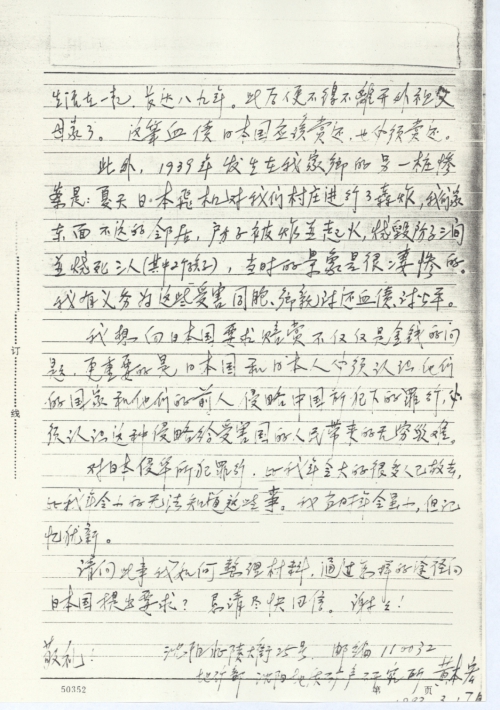 生活在一起，长达八九年。此后便不得不离开外祖父
母家了。这笔血债日本国应该偿还，也必须偿还。
此外，1939年发生在我家乡的另一桩惨
案是：夏天日本飞机对我们村庄进行了轰炸，我们家
东面不远的邻居，房子被炸并起火，烧毁房子三间
并烧死三人（其中2个孩子），当时的景象是很凄惨的。
我有义务为这些受害同胞、乡亲讨还血债，讨公平。
我想向日本国要求赔赏不仅仅是金钱的问
题，更重要的是日本国和日本人必须认识他们
的国家和他们的前人侵略中国所犯下的罪行，必
须认识这种侵略给受害国的人民带来的无穷灾难。
对日本侵华所犯罪行，比我年令大的很多人已故去，
比我年令小的无法知道这些事。我当时年令虽小，但记
忆犹新。
请问此事我如何整理材料，通过怎样的途径向
日本国提出要求？恳请尽快回信。谢谢！
敬礼！
沈阳北陵大街25号 邮编110032
地矿部 沈阳地质矿产研究所
50352
第 页
订
线